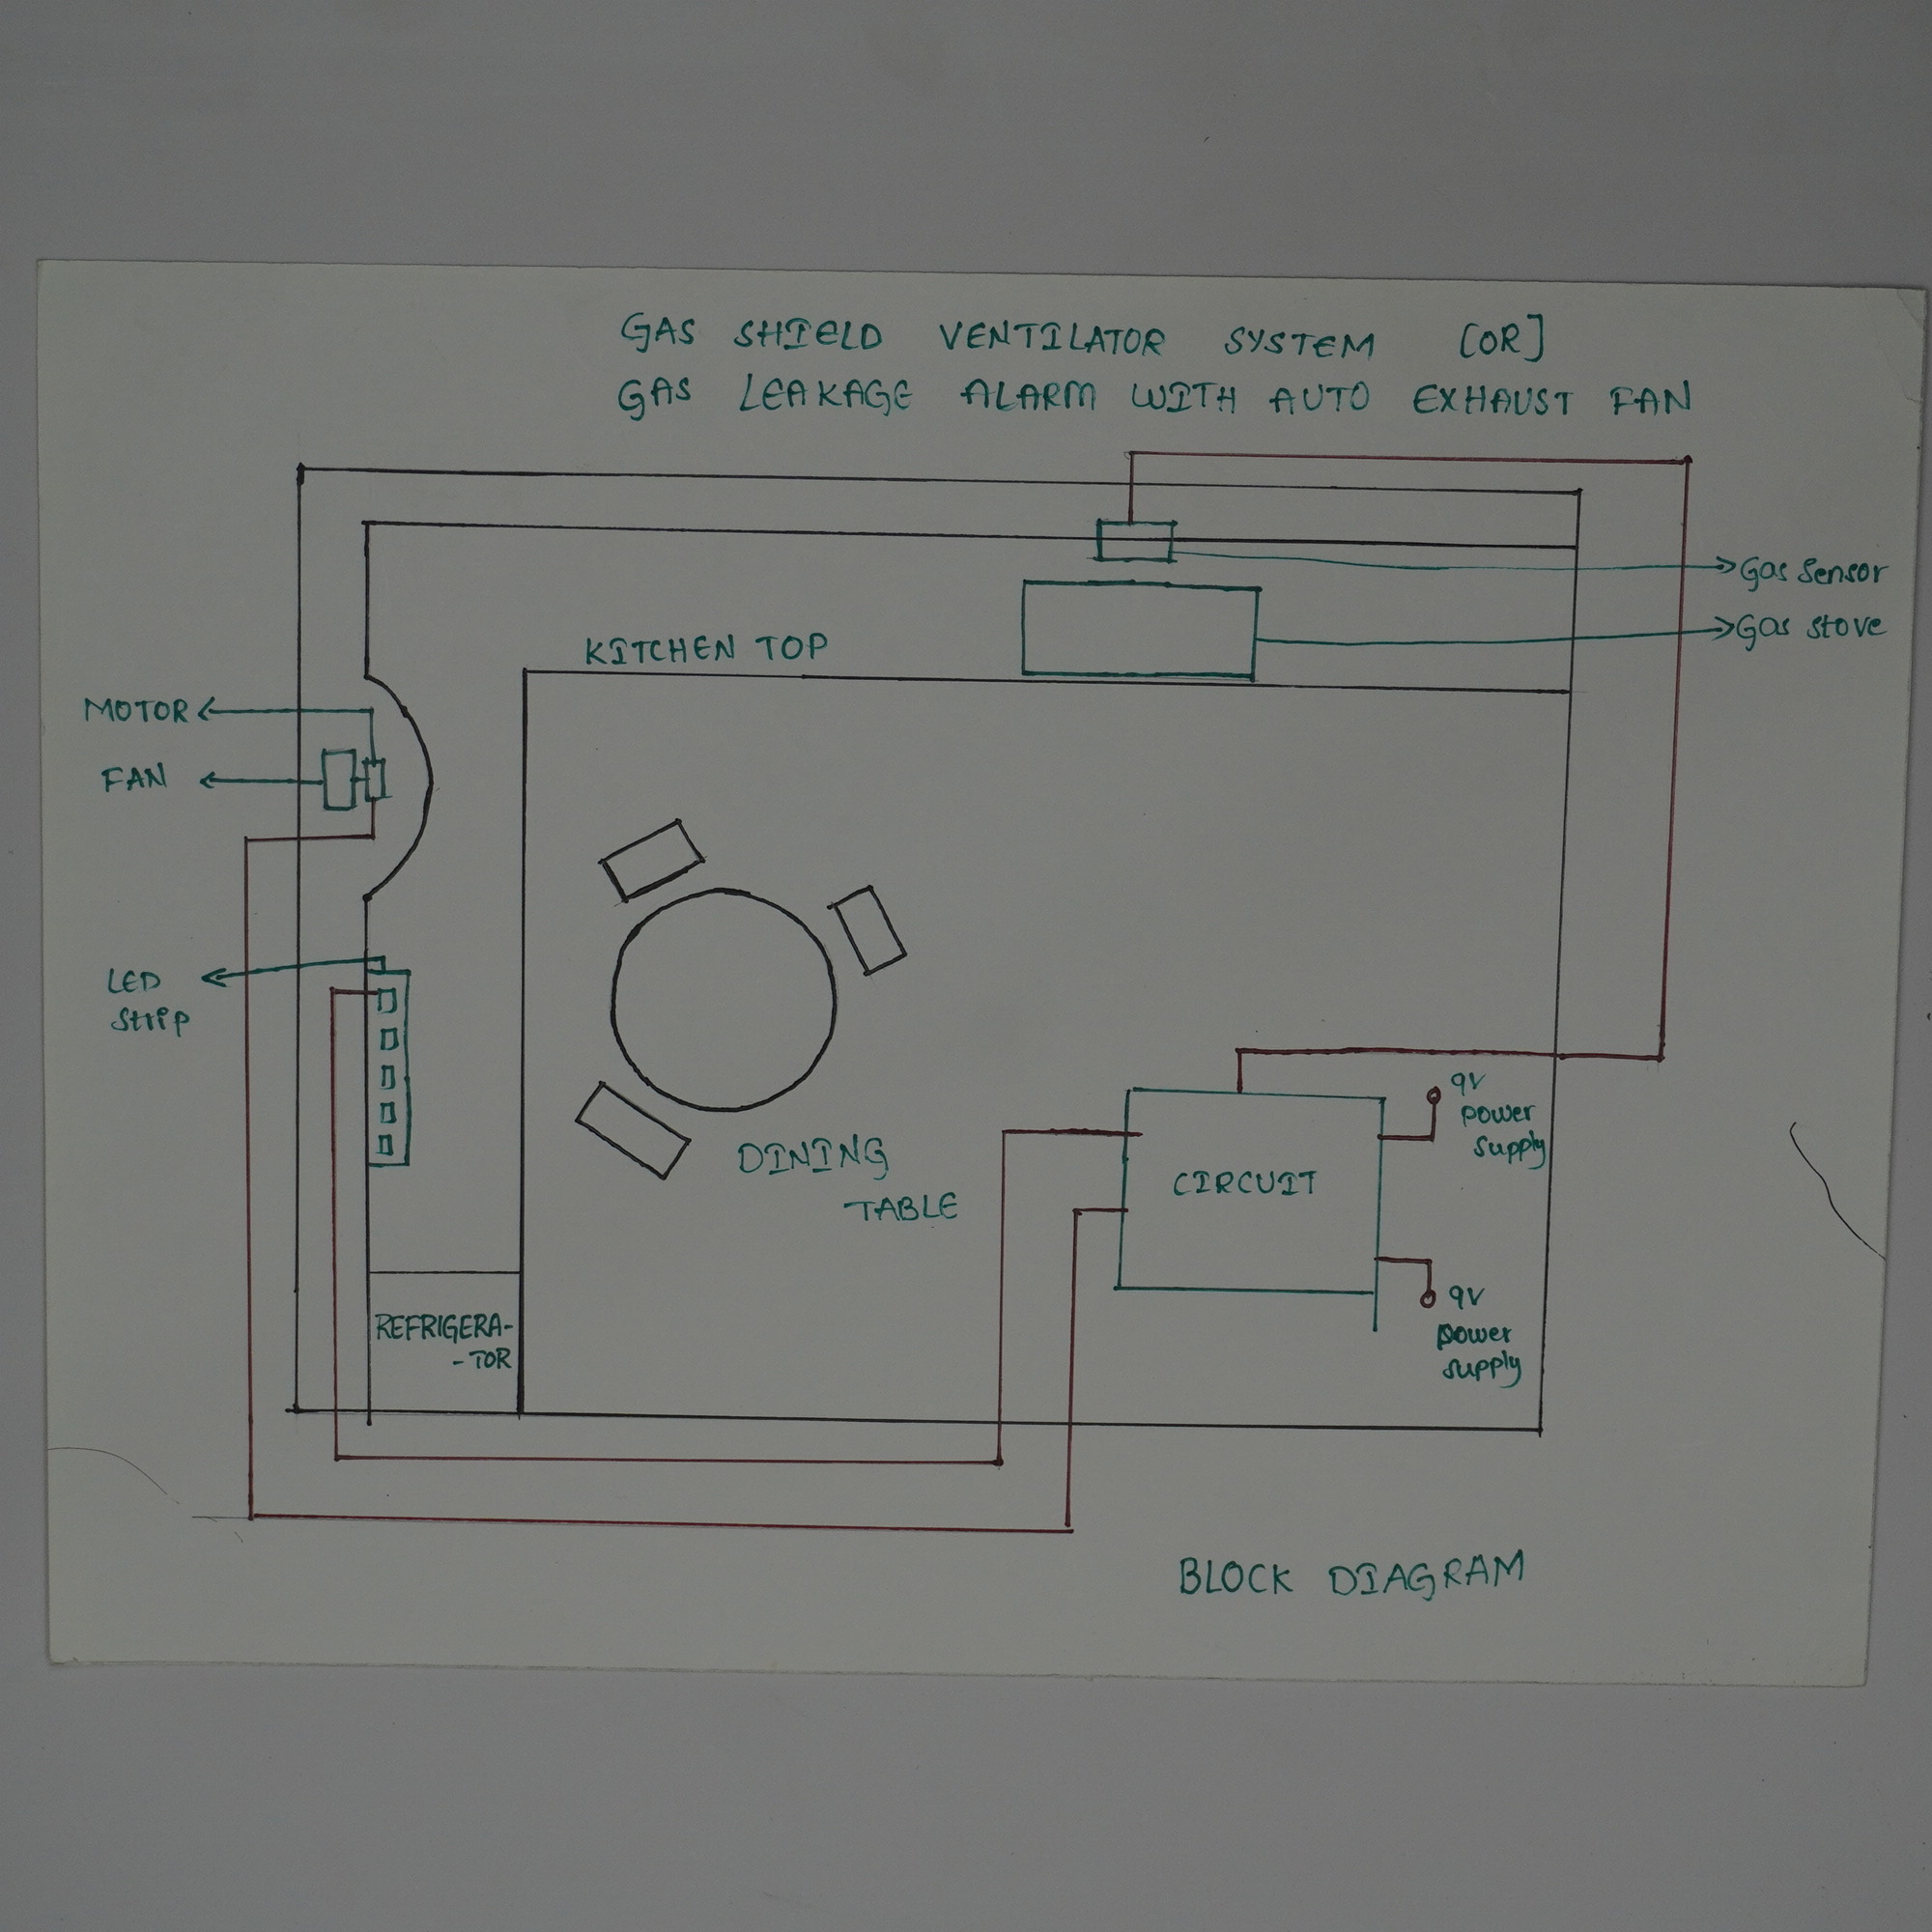 GAS SHIELD VENTILATOR SYSTEM [OR]
GAS LEAKAGE ALARM WITH AUTO EXHAUST FAN
Gas Sensor
Gas stove
KITCHEN TOP
MOTOR
FAN
LED
Strip
DINING
TABLE
CIRCUIT
9V
power
supply
9V
power
supply
REFRIGERA-
- TOR
BLOCK DIAGRAM